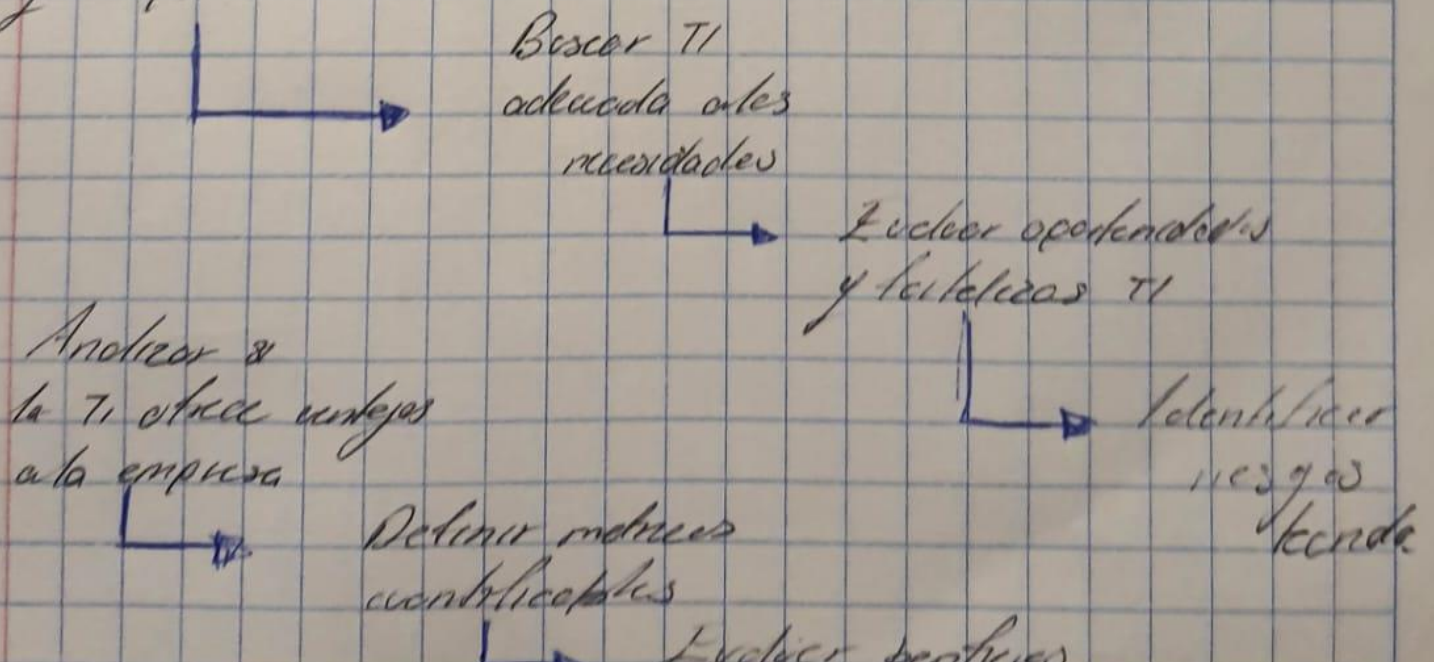 Buscar TI
adecuada a las
necesidades
Evaluar oportunidades
y fortalezas TI
Identificar
riesgos
Analizar si
la TI ofrece ventajas
a la empresa
Definir metricas
cuantificables
Evaluar beneficios